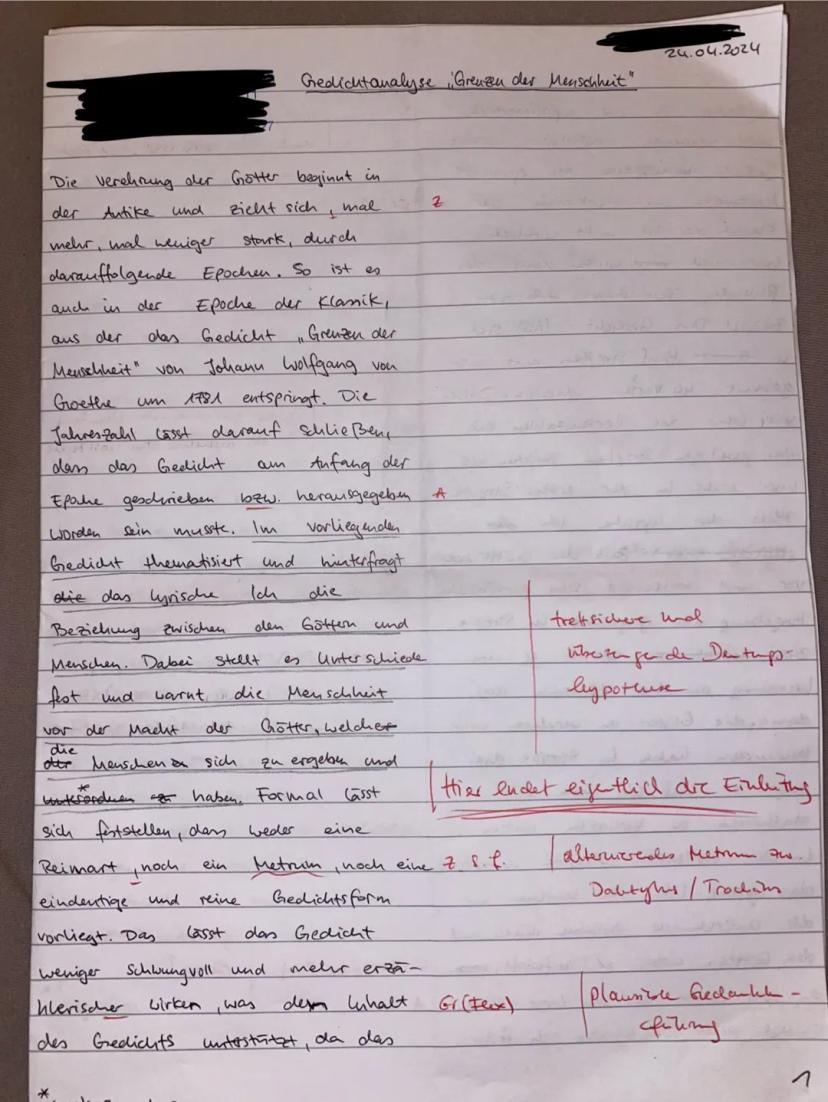 24.04.2024
Gedichtanalyse "Grenzen der Menschheit"
Die Verehrung der Götter beginnt in
der Antike und zieht sich, mal Z
mehr, mal weniger stark, durch
darauffolgende Epochen. So ist es
auch in der Epoche der Klassik,
aus der das Gedicht „Grenzen der
Menschheit" von Johann Wolfgang von
Goethe um 1781 entspringt. Die
Jahreszahl lässt darauf schließen,
dass das Gedicht am Anfang der
Epoche geschrieben bzw. herausgegeben A
worden sein musste. Im vorliegenden
Gedicht thematisiert und hinterfragt
die das lyrische Ich die
Beziehung zwischen den Göttern und treffsichere und
Menschen. Dabei stellt es Unterschiede überzeugende Deutungs-
fest und warnt die Menschheit hypothese
vor der Macht der Götter, welcher
die
Menschen sich zu ergeben und
* haben. Formal lässt Hier endet eigentlich die Einleitung
sich feststellen, dass weder eine
Reimart, noch ein Metrum, noch eine Z s.f. alternierendes Metrum zw.
eindeutige und reine Gedichtsform Daktylus / Trochäus
vorliegt. Das lässt das Gedicht
weniger schwungvoll und mehr erzä-
hlerischer wirken, was dem Inhalt Gr plausible Gedanken-
des Gedichts unterstützt, da das führung
1
*